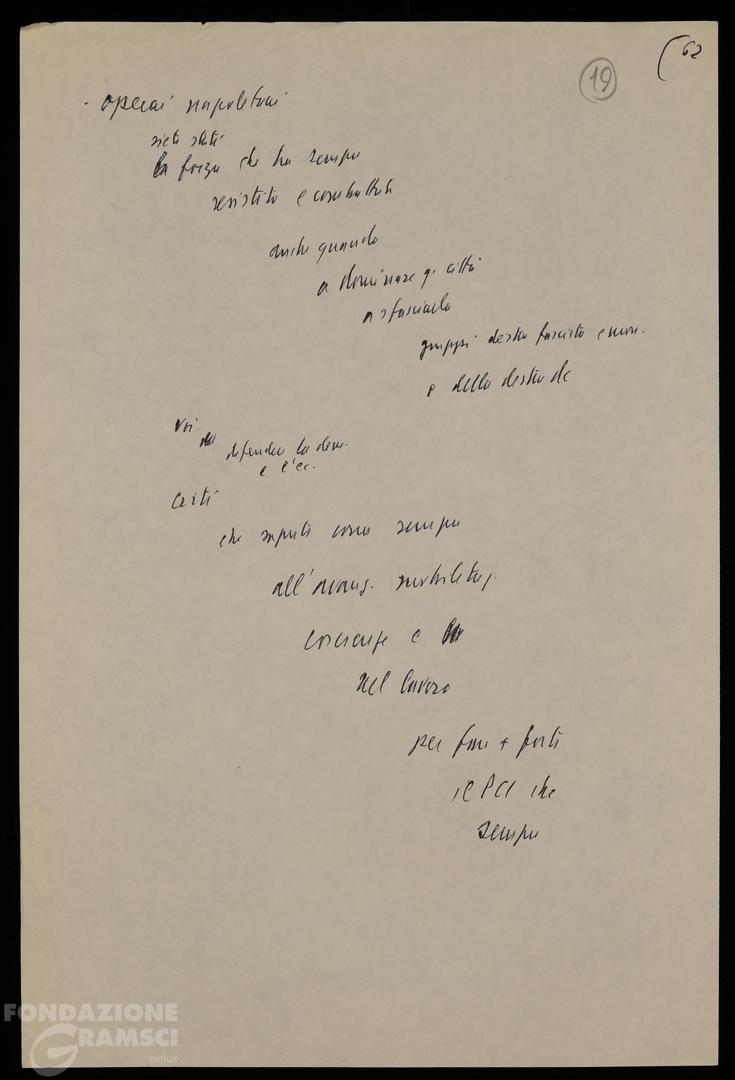 (62
19
· operai napoletani
siete stati
la forza che ha sempre
resistito e combattuto
anche quando
a dominare q. città
a sfasciarla
gruppi destra fascista e mon.
e della destra dc
voi
difendere la dem.
e l'ec.
certi
che saprete come sempre
all'avang.
coscienze e
nel lavoro
per fare + forte
il PCI che
sempre
FONDAZIONE
GRAMSCI
onlus